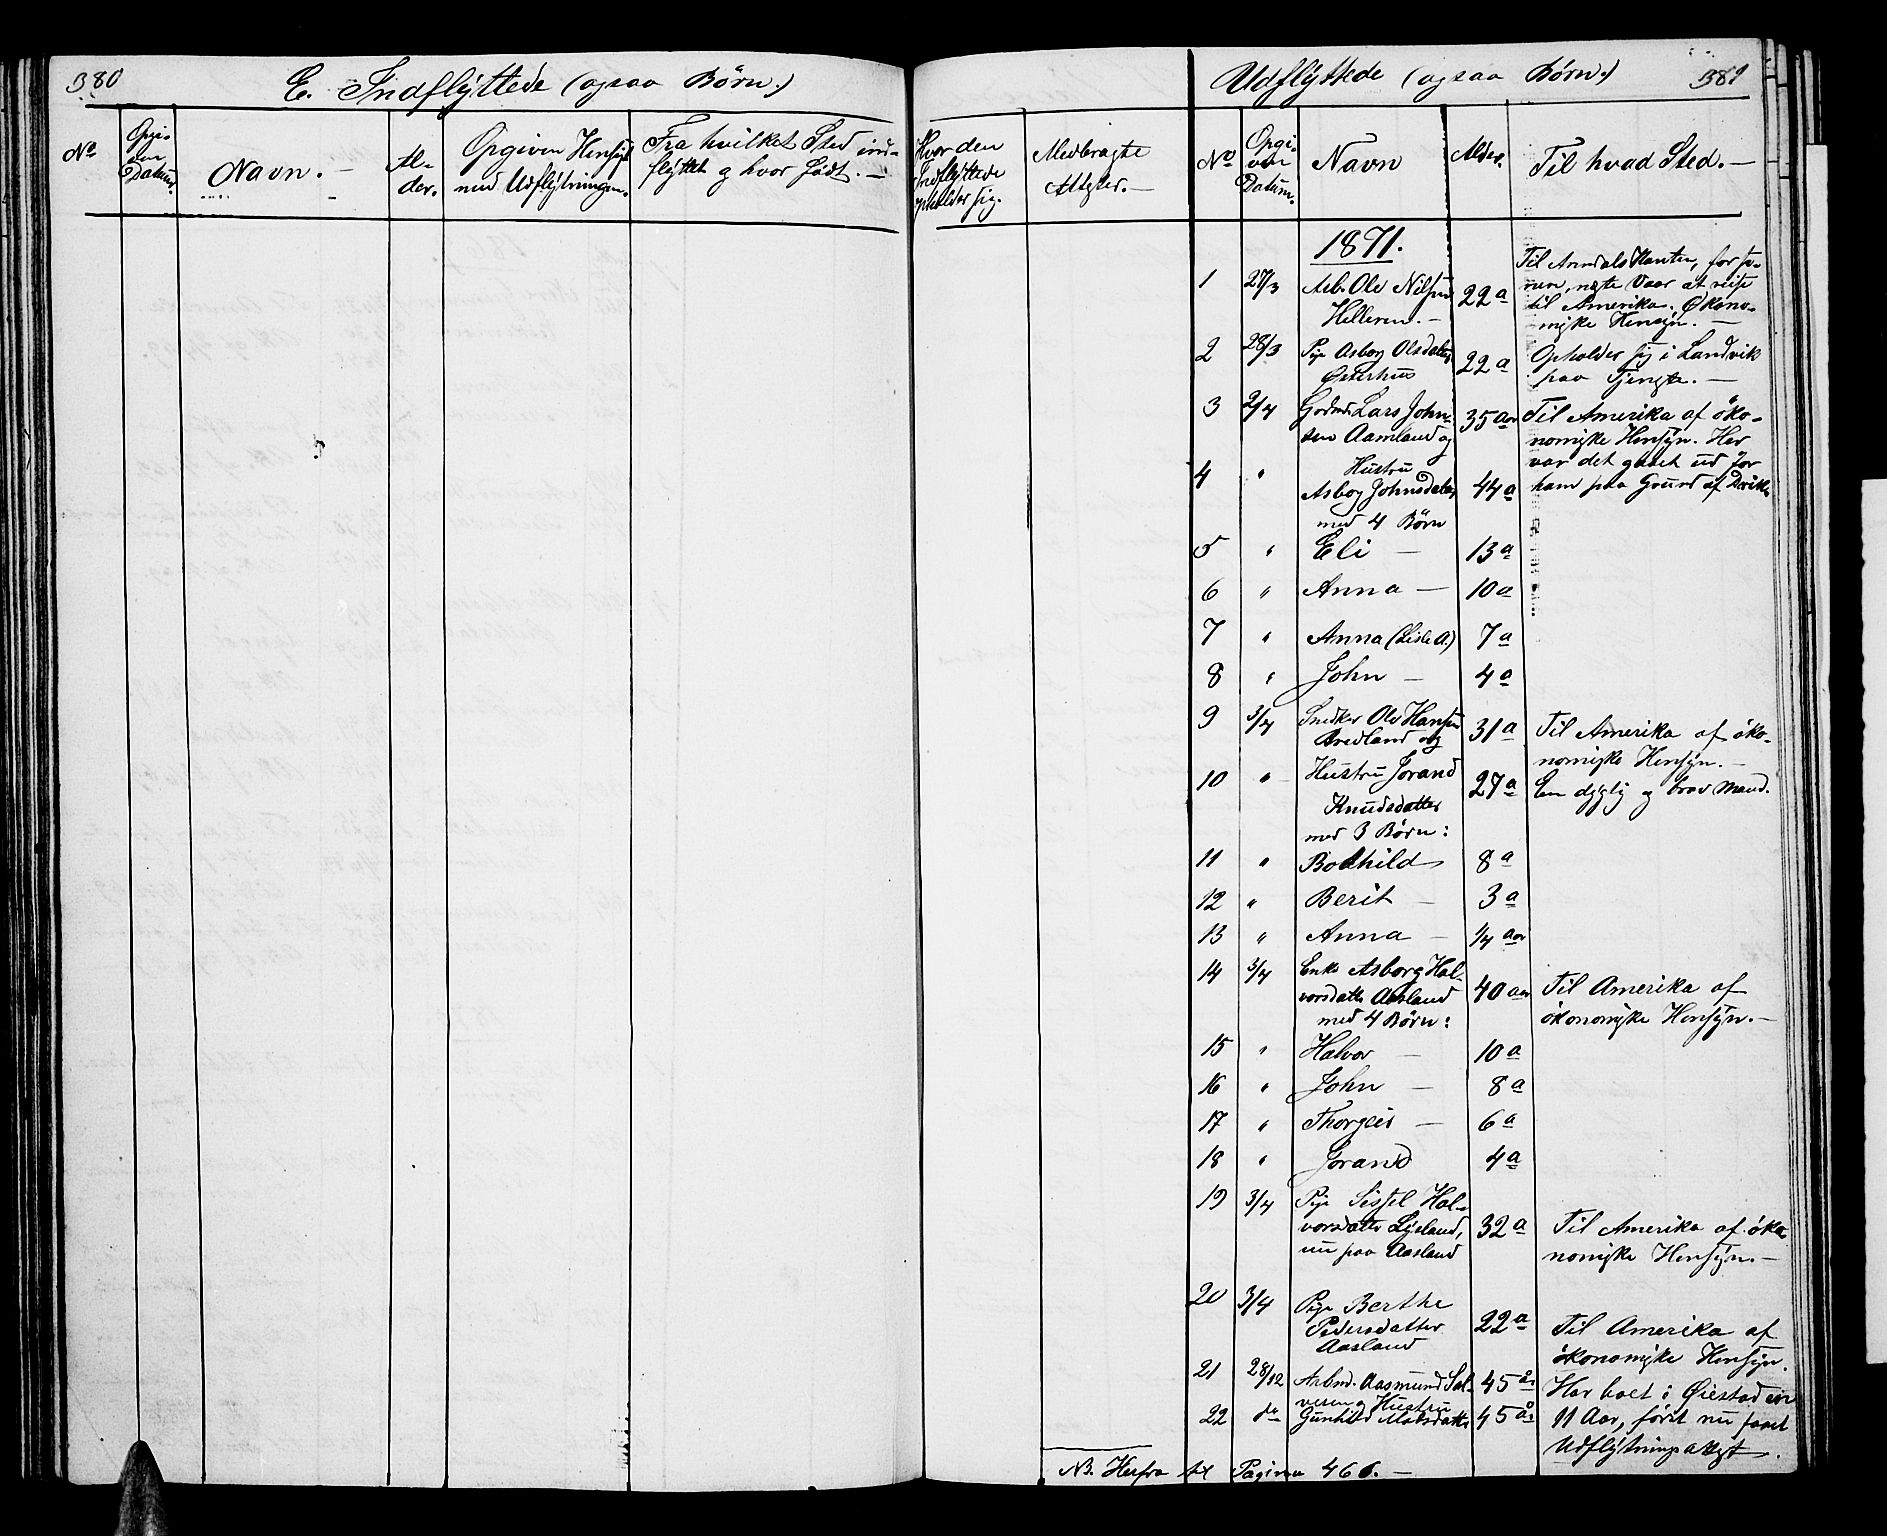 380
E. Indflÿttede (ogsaa Börn.)
No
Opgiven Datum.
Navn. —
Alder.
Opgiven Hensigt
med Udflÿtningen.
Fra hvilket Sted ind-
flÿttet og hvor født. —
Hvor den
Indflÿttede
opholder sig.
Medbragte
Attester. —
Udflÿttede (ogsaa Børn.)
381
No
Opgiven Datum.
Navn
Alder.
Til hvad Sted. —
1871.
1 27/3 Arb. Ole Nilsen
Helleren. — 22 a
Til Arendals Kanten, for se-
nere, næste Vaar at reise
til Amerika. Økono-
miske Hensÿn. —
2 28/3 Pige Asborg Olsdatter
Østerhus 22 a
Opholder sig i Landvik
paa Tjeneste. —
3 2/4 Gaardmd. Lars John-
sen Aamland og 35 aar
Til Amerika af öko-
nomiske Hensÿn. Her
var det gaaet ud for
ham paa Grund af Drik.
4 " Hustru
Asborg Johnsdatter 44 a
med 4 Börn
5 " Eli — 13 a
6 " Anna — 10 a
7 " Anna (Lisle A.) 7 a
8 " John — 4 a
9 3/4 Snedker Ole Hansen
Aredland og 31 a
Til Amerika af öko-
nomiske Hensÿn. —
En dygtig og brav Mand.
10 " Hustru Jorand
Knudsdatter 27 a
med 3 Börn:
11 " Bodhild 8 a
12 " Berit — 3 a
13 " Anna — 1/4 aar
14 3/4 Enke Asborg Hal-
vorsdatter Aasland 40 aar
med 4 Börn:
Til Amerika af
ökonomiske Hensÿn. —
15 " Halvor — 10 a
16 " John — 8 a
17 " Thorgeir — 6 a
18 " Jorand 4 a
19 3/4 Pige Sissel Hal-
vorsdatter Ljosland,
nu paa Aasland 32 a
Til Amerika af öko-
nomiske Hensÿn. —
20 3/4 Pige Berthe
Pedersdatter
Aasland 22 a
Til Amerika af
ökonomiske Hensÿn.
21 28/12 Arbmd. Aasmund Sal-
vesen og Hustru 45 år
Har boet i Øiestad en
11 Aar, først nu faaet
Udflÿtningsattest.
22 do Gunhild Madsdatter 45 år
NB. Herfra til Pagina 466. —